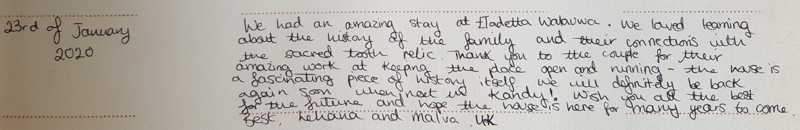 23rd of January
2020
We had an amazing stay at Eladetta Walauwa. We loved learning
about the history of the family and their connections with
the sacred tooth relic. Thank you to the couple for their
amazing work at keeping the place open and running - the house is
a fascinating piece of history itself. We will definitely be back
again soon when next in Kandy! Wish you all the best
for the future and hope the house is here for many years to come.
Best, and Malva. UK